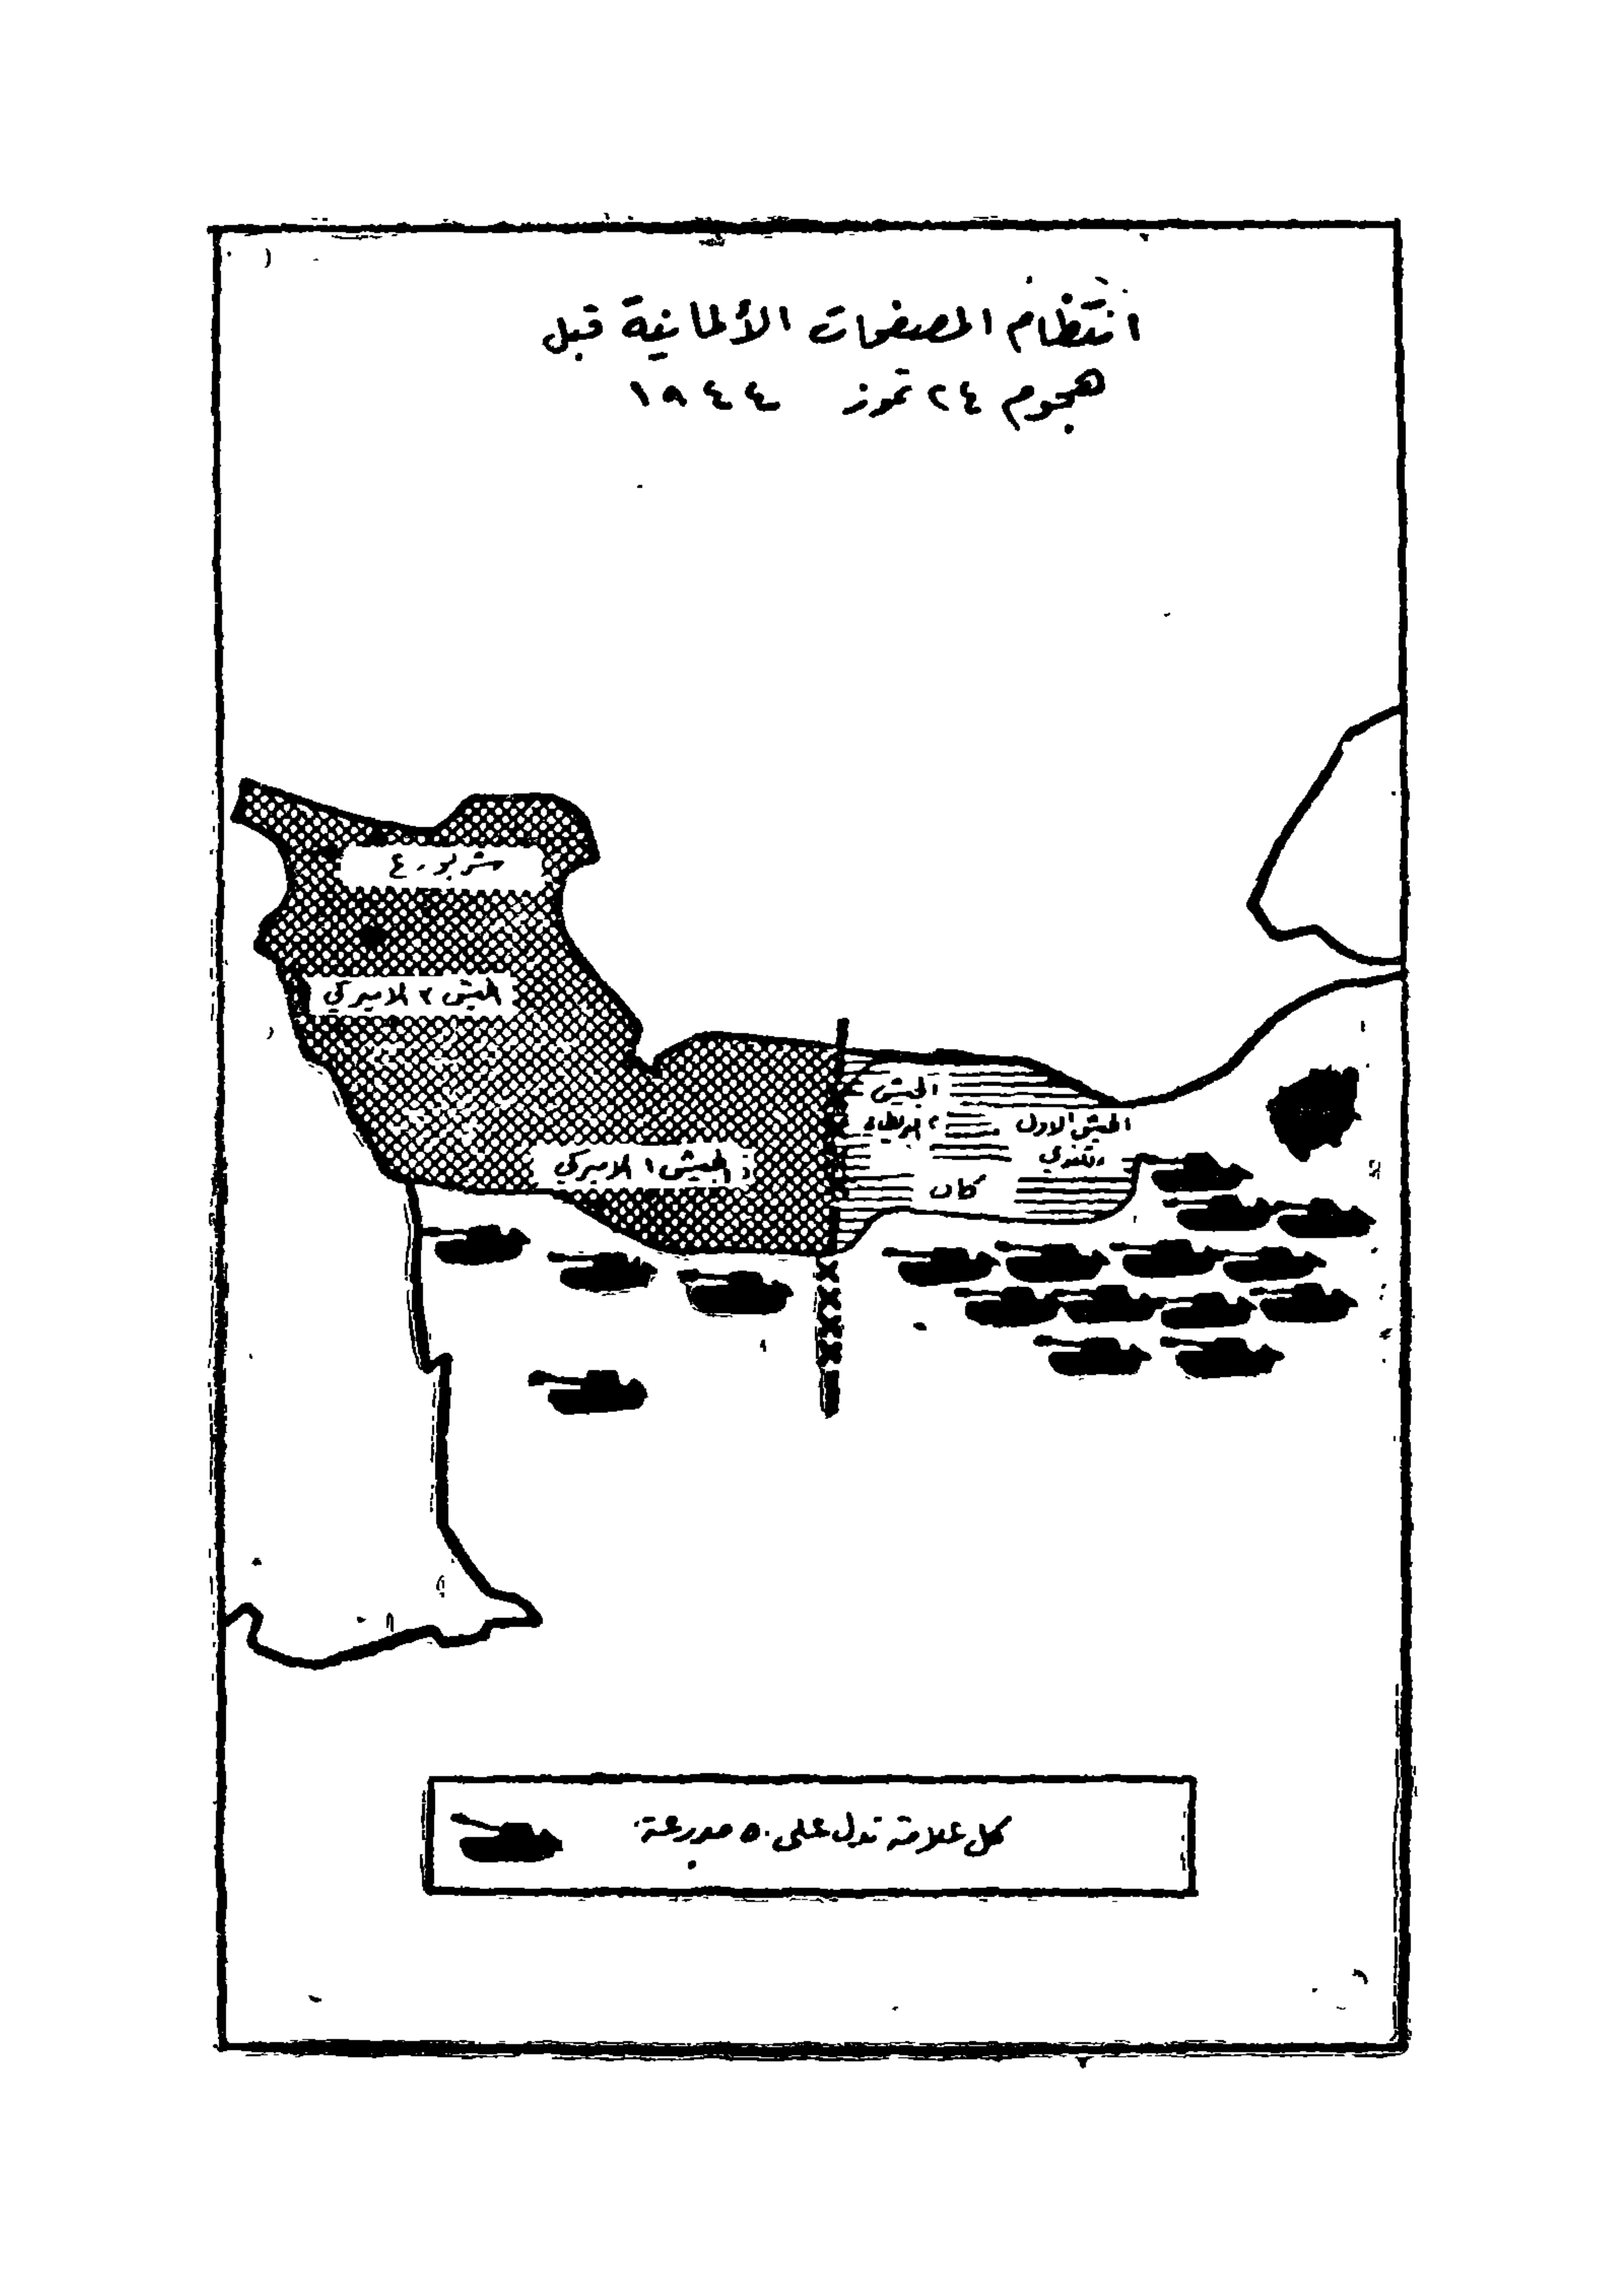 انتظام المصفحات الألمانية قبل
هجوم ٢٤ تموز ١٩٤٤
شربورغ
الجيش ٣ الاميركي
الجيش
٢ البريطاني
الجيش الاول
الكندي
الجيش ١ الاميركي
كان
كل علامة تدل على ٥٠ مدرعة